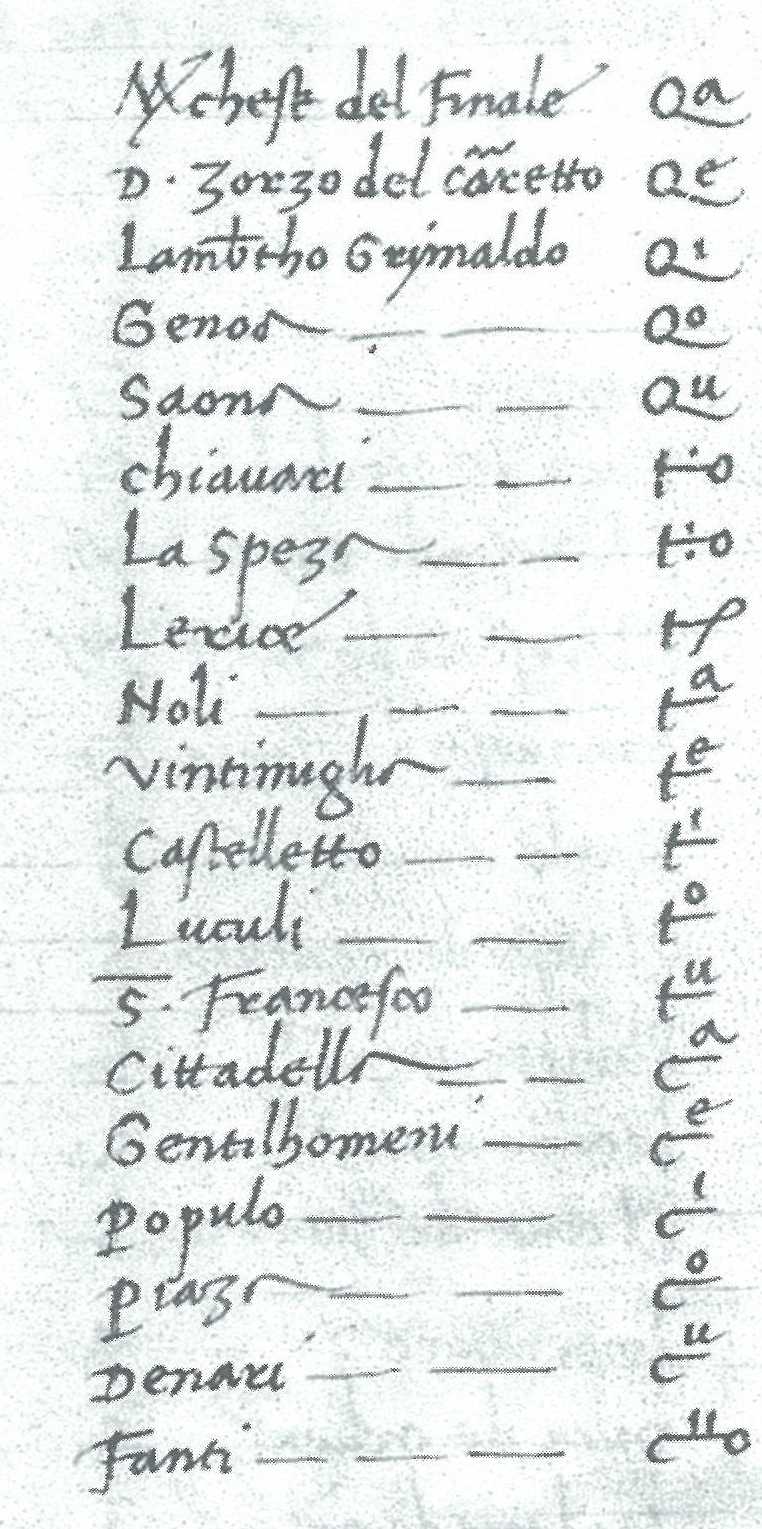 Mchese del Finale Qa
D. Zorzo del cãretto Qe
Lambtho Grimaldo Qi
Genoa Qo
Saona Qu
chiauari
La Speza
Lerice
Noli Ta
Vintimigla Te
Castelletto Ti
Luculi To
S. Francesco Tu
Cittadella
Gentilhomeni
Populo
Piaza
Denari
Fanti